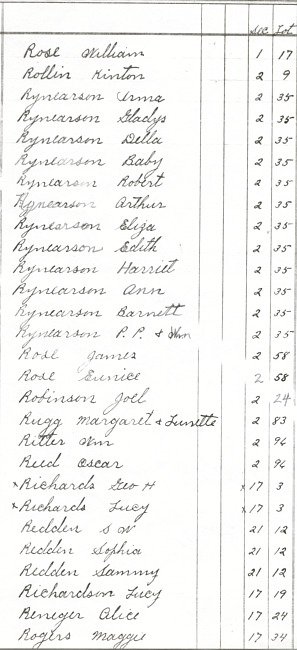 Sec Lot
Rose William 1 17
Rollin Kinton 2 9
Rynearson Irma 2 35
Rynearson Gladys 2 35
Rynearson Della 2 35
Rynearson Baby 2 35
Rynearson Robert 2 35
Rynearson Arthur 2 35
Rynearson Eliza 2 35
Rynearson Edith 2 35
Rynearson Harriet 2 35
Rynearson Ann 2 35
Rynearson Barnett 2 35
Rynearson P. P. & Wm 2 35
Rose James 2 58
Rose Eunice 2 58
Robinson Joel 2 24
Rugg Margaret & Lunette 2 83
Ritter Wm 2 96
Reed Oscar 2 96
x Richards Geo H x 17 3
x Richards Lucy x 17 3
Redden S W 21 12
Redden Sophia 21 12
Redden Sammy 21 12
Richardson Lucy 17 19
Reneger Alice 17 24
Rogers Maggie 17 34